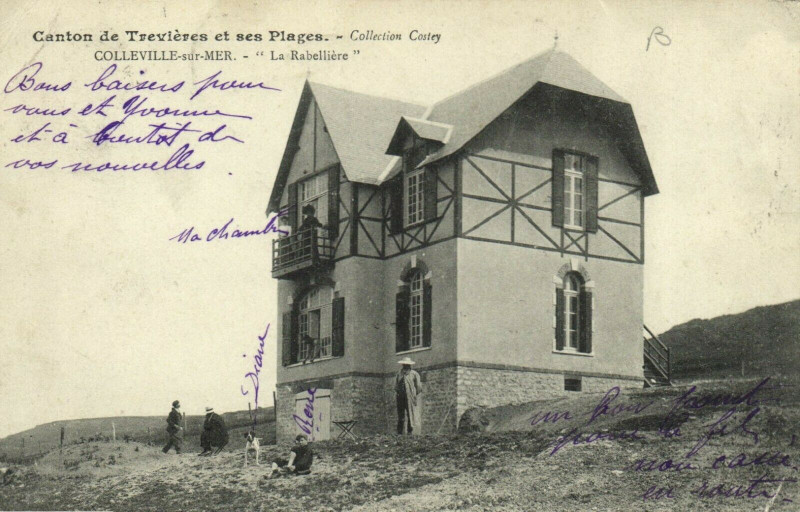 Canton de Trevières et ses Plages. - Collection Costey
COLLEVILLE-sur-MER. - " La Rabellière "
B
Bons baisers pour
vous et Yvonne
et à bientôt de
vos nouvelles.
Ma chambre
Diane
René
un bon
en route.